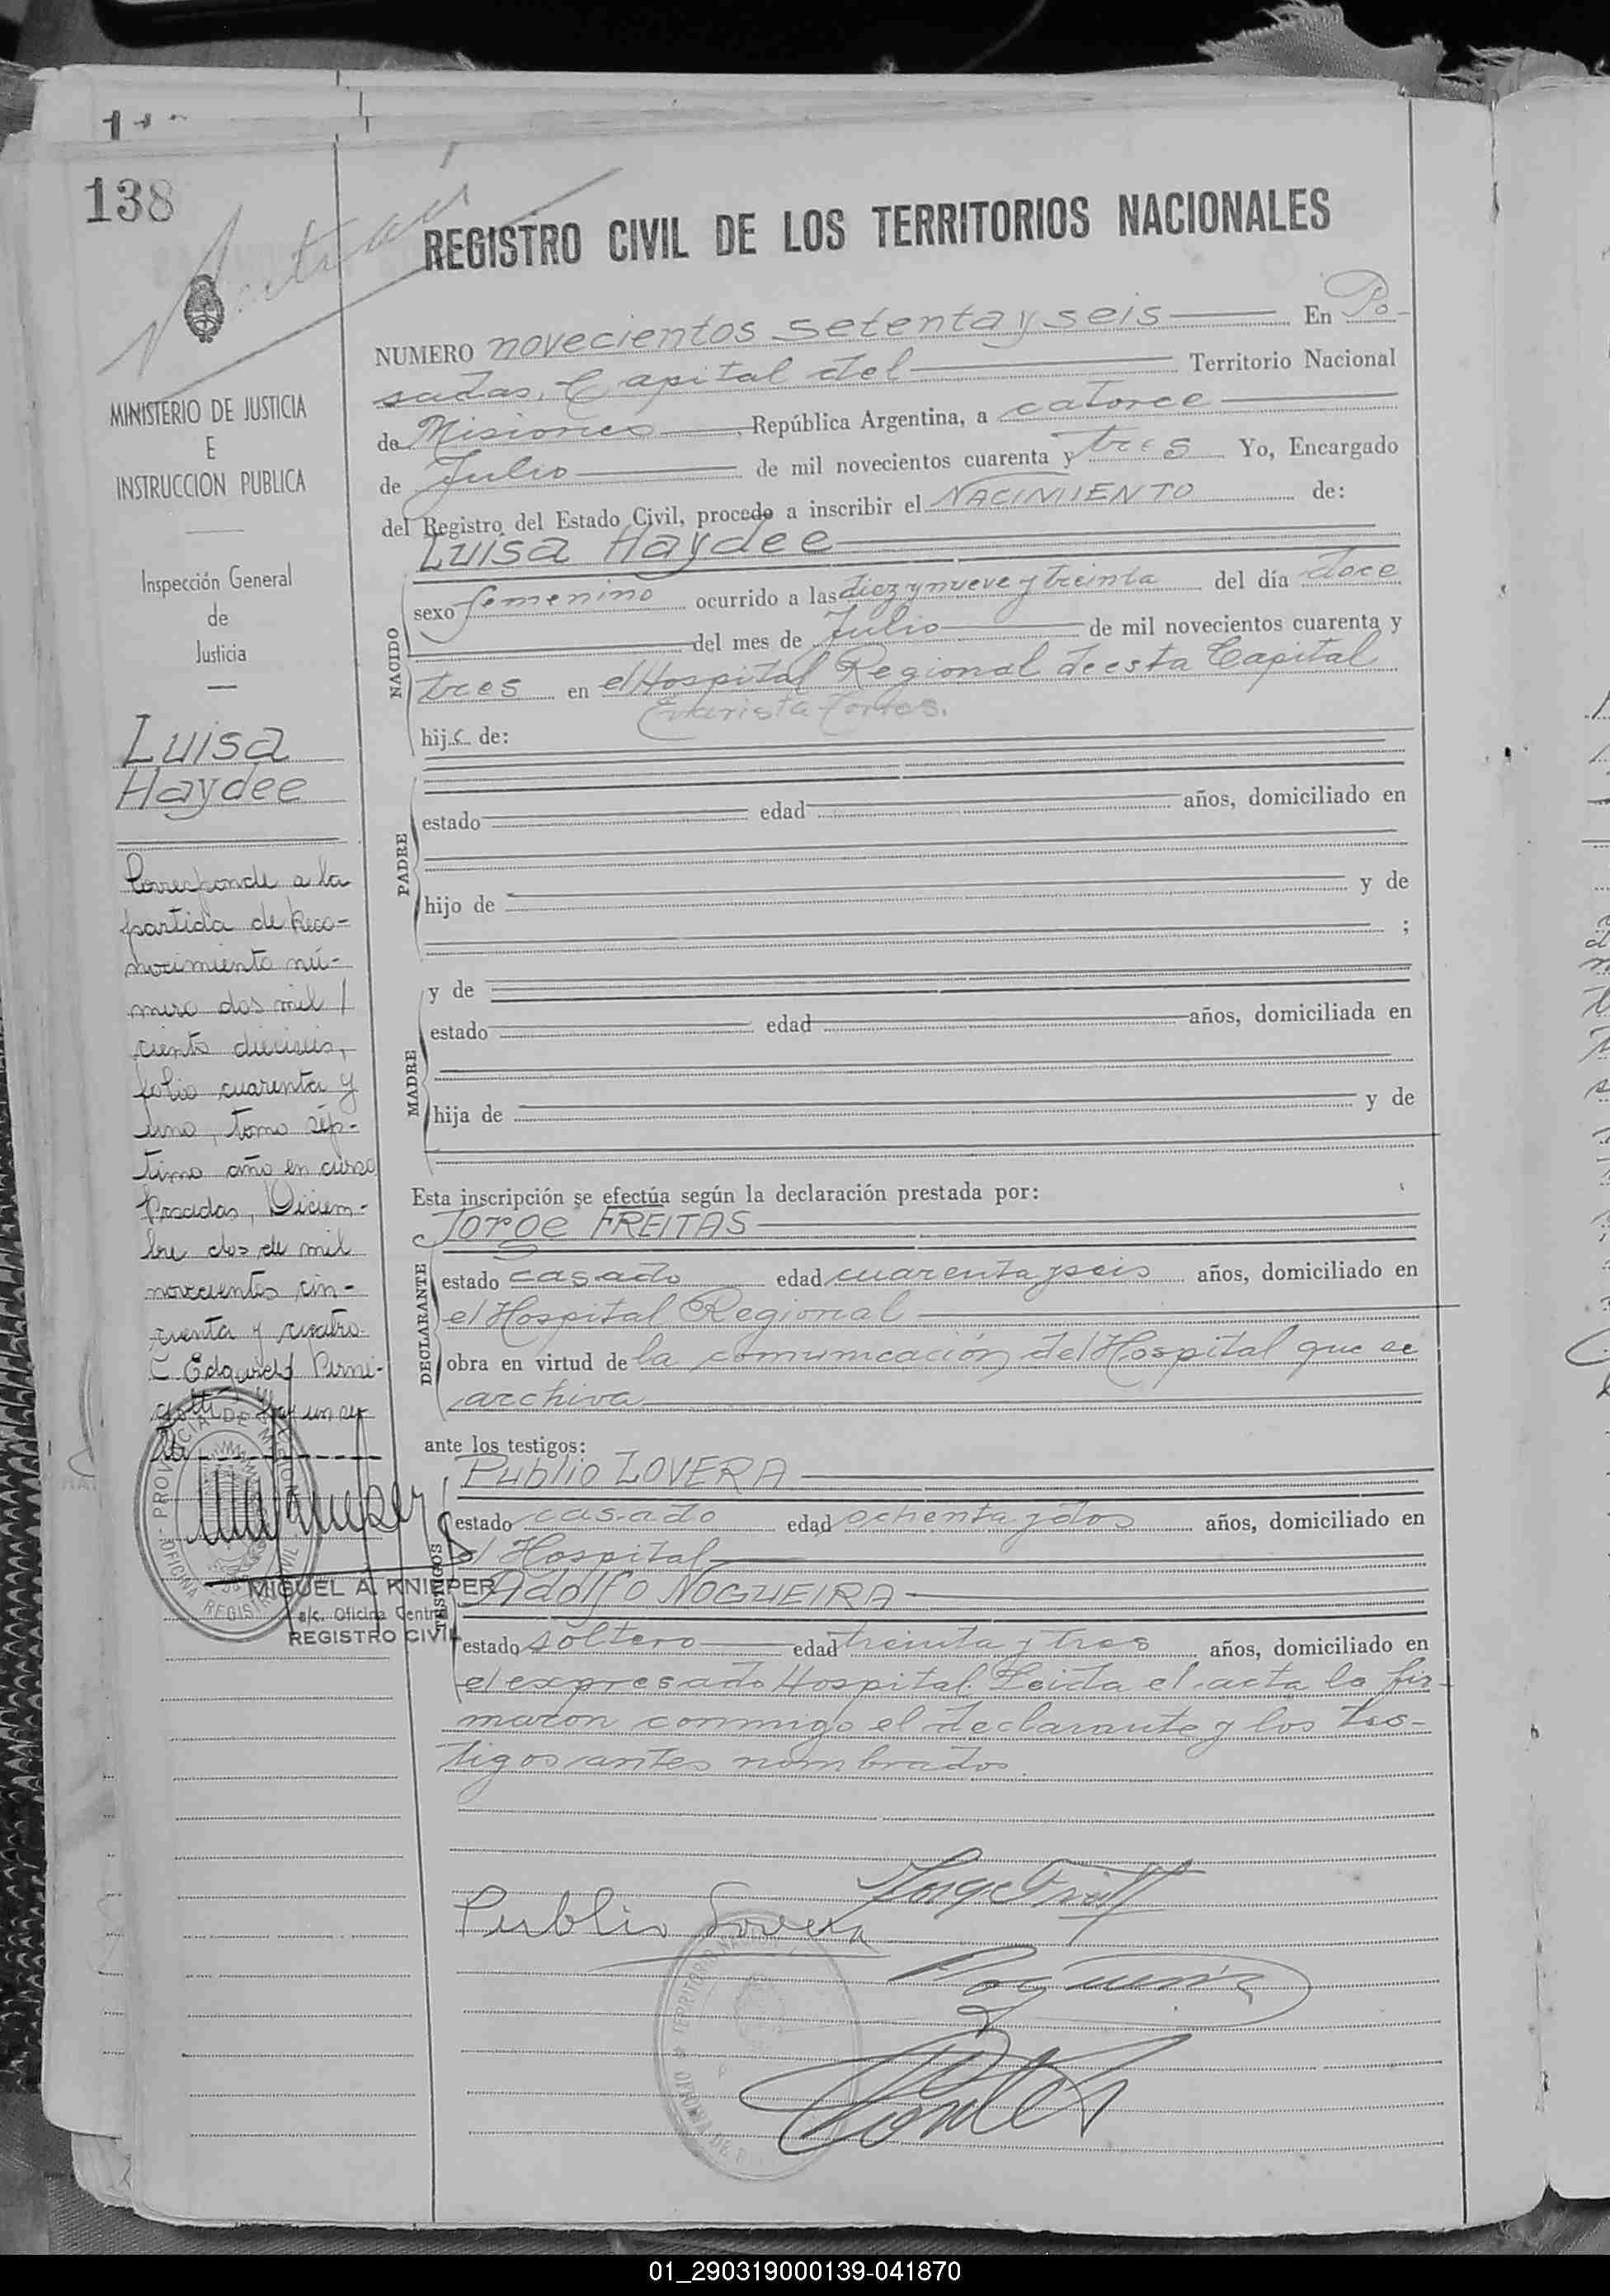 138
REGISTRO CIVIL DE LOS TERRITORIOS NACIONALES
NUMERO novecientos setenta y seis En Po-
sadas, Capital del Territorio Nacional
de Misiones, República Argentina, a catorce
de Julio de mil novecientos cuarenta y tres Yo, Encargado
del Registro del Estado Civil, procedo a inscribir el NACIMIENTO de:
Luisa Haydee
NACIDO
sexo femenino ocurrido a las diez y nueve y treinta del día doce
del mes de Julio de mil novecientos cuarenta y
tres en el Hospital Regional de esta Capital
Evarista Torres.
hij de:
PADRE
estado edad años, domiciliado en
hijo de y de
;
MADRE
y de
estado edad años, domiciliada en
hija de y de
Esta inscripción se efectúa según la declaración prestada por:
Jorge FREITAS
DECLARANTE
estado casado edad cuarenta y seis años, domiciliado en
el Hospital Regional
obra en virtud de la comunicación del Hospital que se
archiva
ante los testigos:
TESTIGOS
Publio LOVERA
estado casado edad ochenta y dos años, domiciliado en
el Hospital
Adolfo NOGUEIRA
estado soltero edad treinta y tres años, domiciliado en
el expresado Hospital. Leida el acta la fir-
maron conmigo el declarante y los tes-
tigos antes nombrados.
Jorge Freitas
Publio Lovera
Nogueira
MINISTERIO DE JUSTICIA
E
INSTRUCCION PUBLICA
Inspección General
de
Justicia
Luisa
Haydee
Corresponde a la
partida de Reco-
nocimiento nú-
mero dos mil
ciento dieciseis,
folio cuarenta y
uno, tomo sép-
timo año en curso
Posadas, Diciem-
bre dos de mil
novecientos cin-
cuenta y cuatro
hay un se-
PROVINCIA DE MISIONES
OFICINA REGISTRO CIVIL
MIGUEL A. KNIEPER
a/c. Oficina Central
REGISTRO CIVIL
01_290319000139-041870